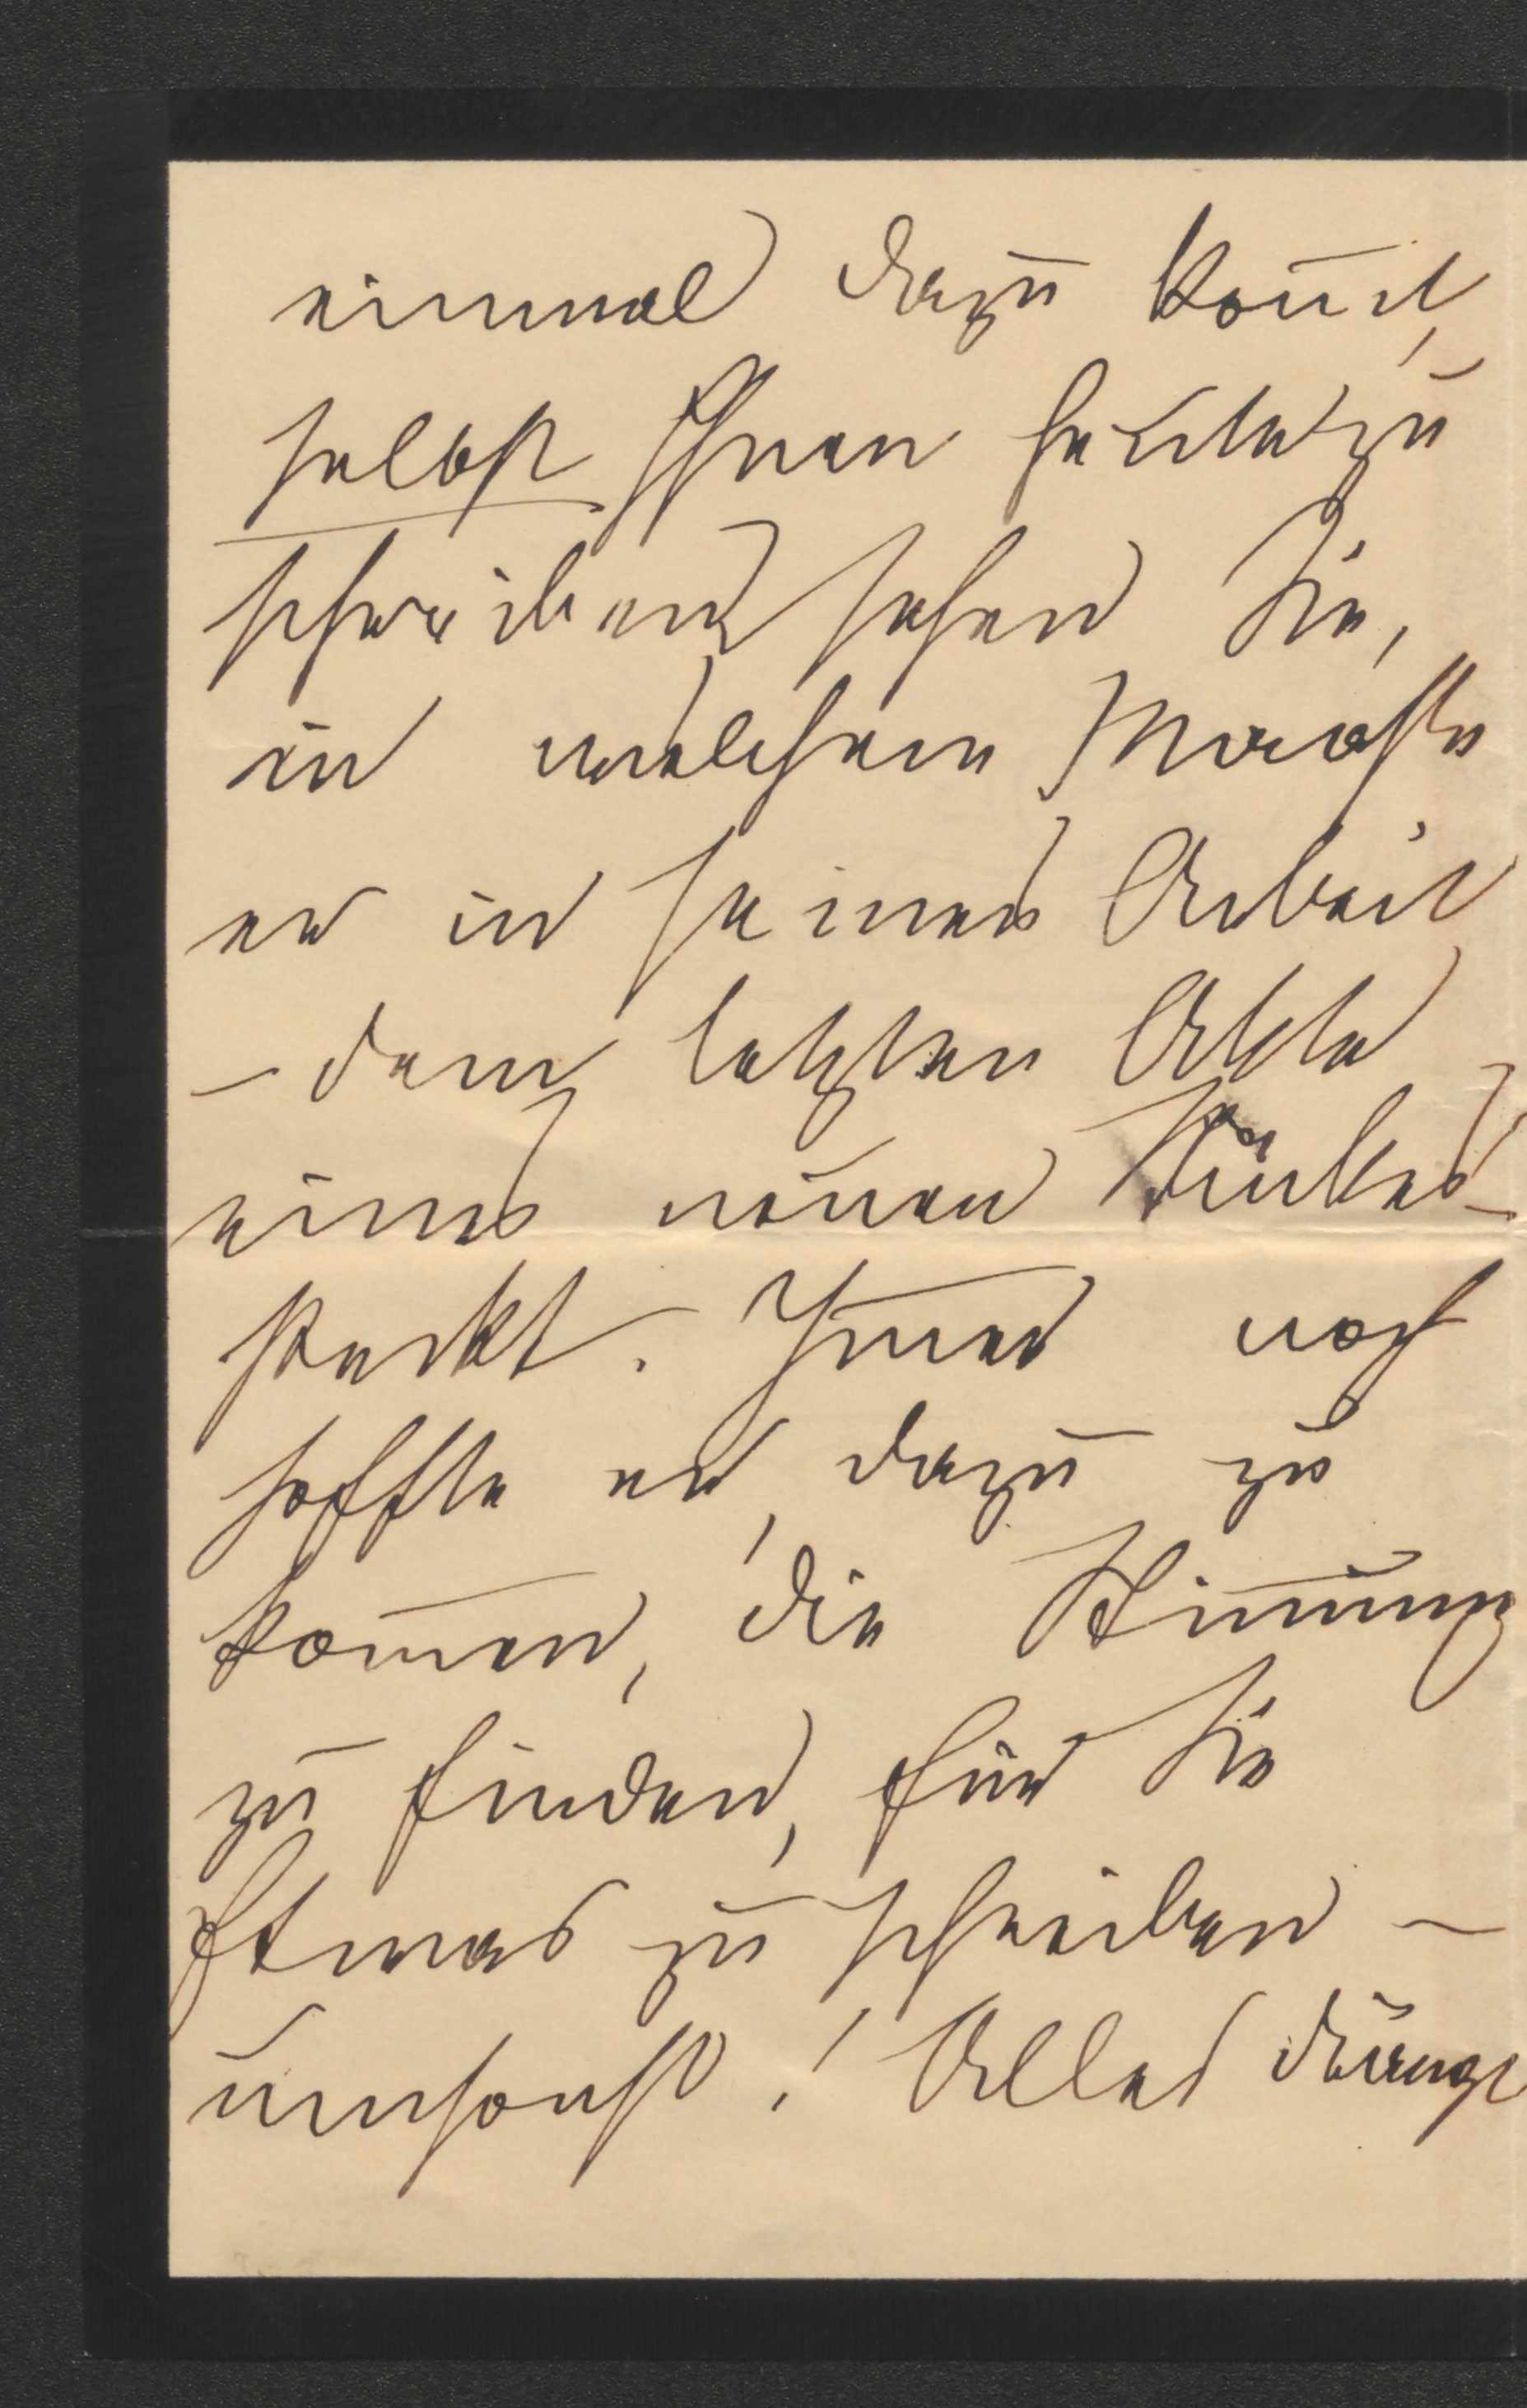 einmal dazu kom̄t,
selbst Ihnen heute zu
schreiben, sehen Sie,
in welchem Maaße
er in seiner Arbeit
– dem letzten Akte
eines neuen Stückes –
steckt. Im̄er noch
hoffte er, dazu zu
kom̄en, die Stim̄ung
zu finden, für Sie
Etwas zu schreiben –
umsonst! Alles drängt